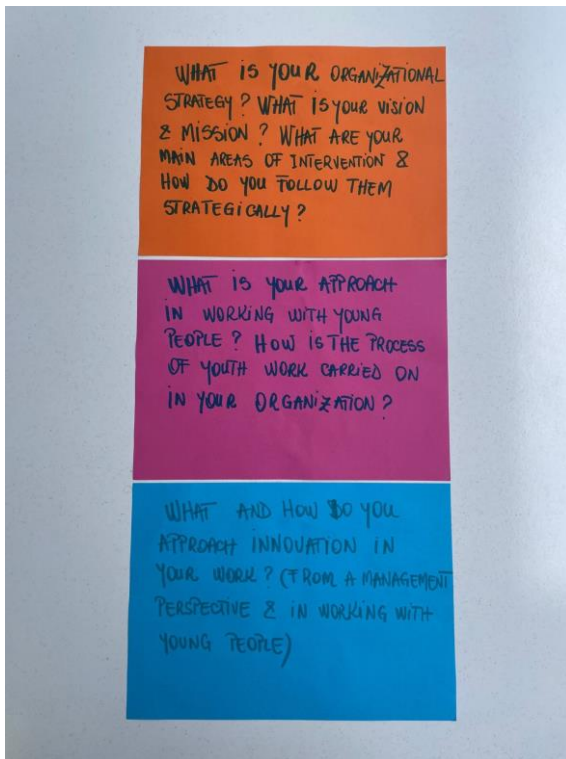 WHAT IS YOUR ORGANIZATIONAL
STRATEGY? WHAT IS YOUR VISION
& MISSION? WHAT ARE YOUR
MAIN AREAS OF INTERVENTION &
HOW DO YOU FOLLOW THEM
STRATEGICALLY?
WHAT IS YOUR APPROACH
IN WORKING WITH YOUNG
PEOPLE? HOW IS THE PROCESS
OF YOUTH WORK CARRIED ON
IN YOUR ORGANIZATION?
WHAT AND HOW DO YOU
APPROACH INNOVATION IN
YOUR WORK? (FROM A MANAGEMENT
PERSPECTIVE & IN WORKING WITH
YOUNG PEOPLE)